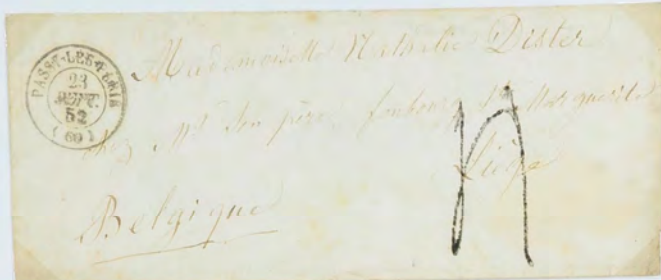 PASSY-LES-PARIS
23
SEPT.
52
(60)
Mademoiselle Nathalie Dister
chez Mr son père, faubourg Ste Marguerite
Liège
Belgique